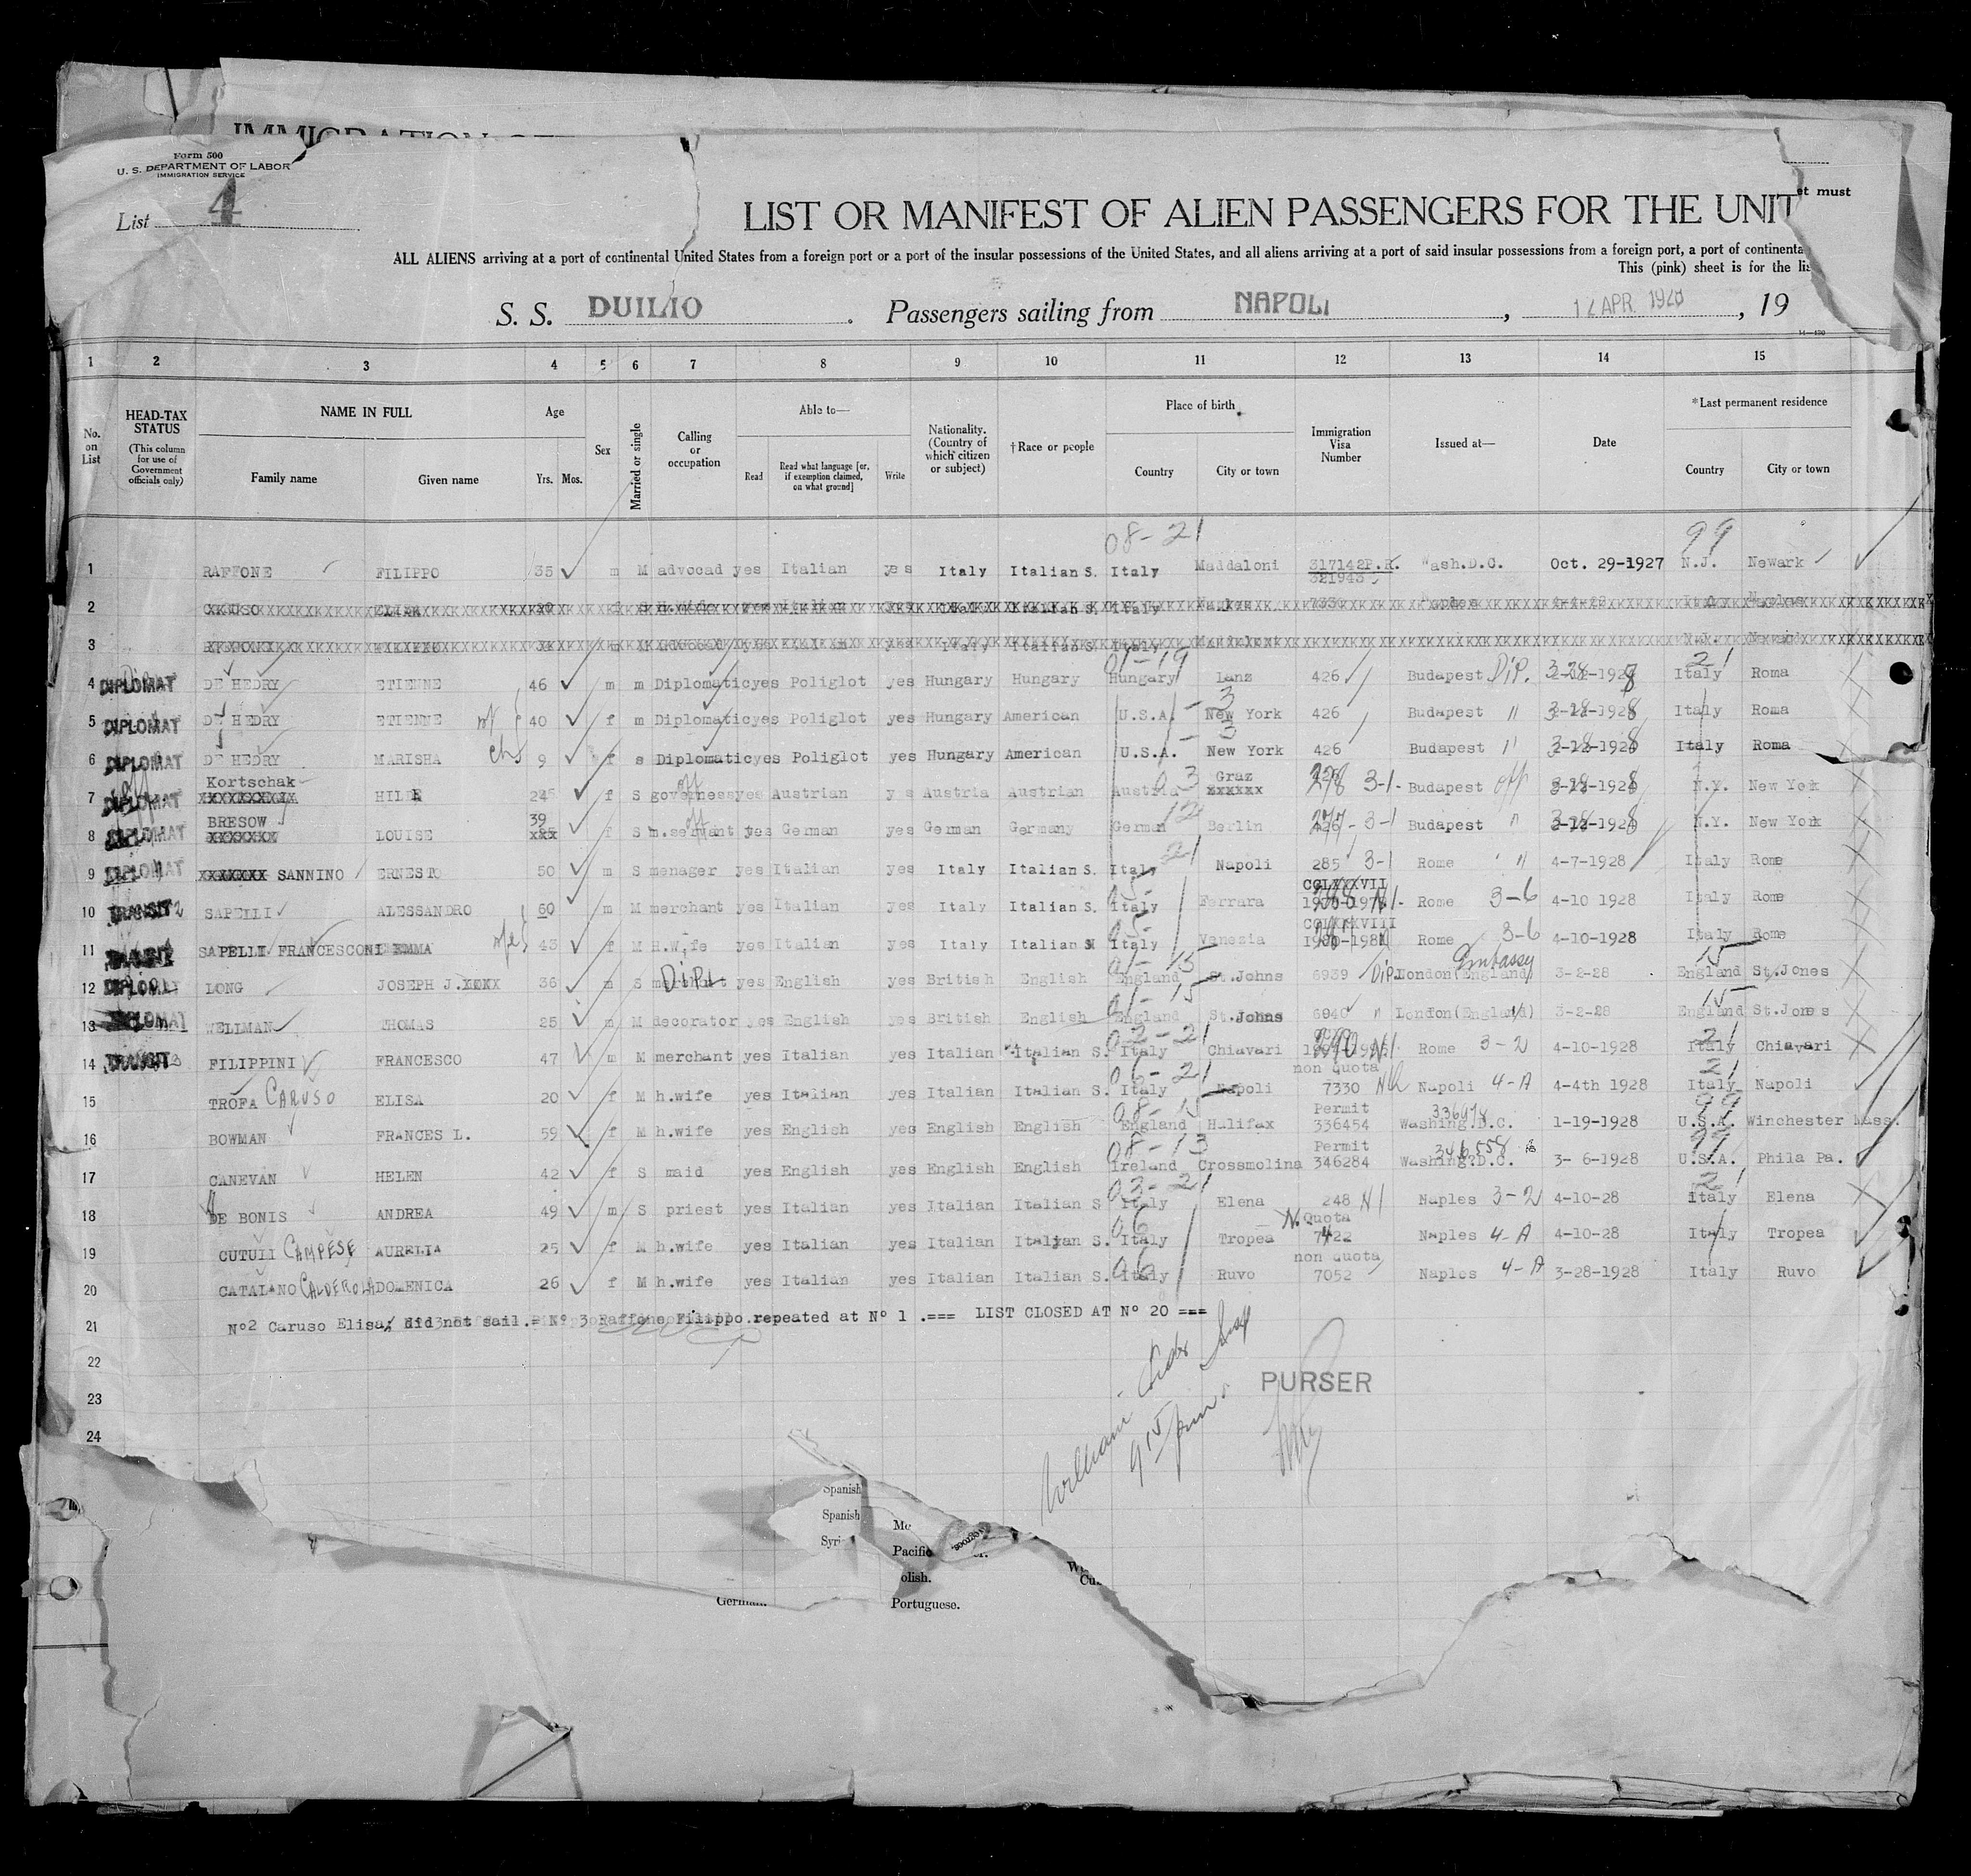 IMMIGRATION
Form 500
U. S. DEPARTMENT OF LABOR
IMMIGRATION SERVICE
List 4
et must
LIST OR MANIFEST OF ALIEN PASSENGERS FOR THE UNIT
ALL ALIENS arriving at a port of continental United States from a foreign port or a port of the insular possessions of the United States, and all aliens arriving at a port of said insular possessions from a foreign port, a port of continenta
This (pink) sheet is for the lis
S. S. DUILIO . Passengers sailing from NAPOLI , 12 APR. 1928 , 19
14—430
1 2 3 4 5 6 7 8 9 10 11 12 13 14 15
No. on List
HEAD-TAX STATUS
(This column for use of Government officials only)
NAME IN FULL
Family name Given name
Age
Yrs. Mos.
Sex
Married or single
Calling or occupation
Able to—
Read Read what language [or, if exemption claimed, on what ground] Write
Nationality. (Country of which citizen or subject)
†Race or people
Place of birth
Country City or town
Immigration Visa Number
Issued at—
Date
*Last permanent residence
Country City or town
08-21 99
1 RAFFONE FILIPPO 35 m M advocad yes Italian yes Italy Italian S. Italy Maddaloni 317142P.R. 321943 Wash.D.C. Oct. 29-1927 N.J. Newark
2 CARUSO ELISA Italian S. Italy
3 Italy Italian S. Italy
01-19 21
4 DIPLOMAT DE HEDRY ETIENNE 46 m m Diplomatic yes Poliglot yes Hungary Hungary Hungary Lanz 426 Budapest Dip. 3-28-1928 Italy Roma
5 DIPLOMAT DE HEDRY ETIENNE wf 40 f m Diplomatic yes Poliglot yes Hungary American U.S.A. New York 426 Budapest " Italy Roma
6 DIPLOMAT DE HEDRY MARISHA ch 9 f s Diplomatic yes Poliglot yes Hungary American U.S.A. New York 426 Budapest " Italy Roma
7 DIPLOMAT Kortschak HILDE 24 f S governess yes Austrian yes Austria Austrian Austria Graz 278 3-1- Budapest off N.Y. New York
8 DIPLOMAT BRESOW LOUISE 39 f S m.servant yes German yes German Germany German Berlin 277-3-1 Budapest " N.Y. New York
9 DIPLOMAT SANNINO ERNESTO 50 m S menager yes Italian yes Italy Italian S. Italy Napoli 285 3-1 Rome " 4-7-1928 Italy Rome
CCLXXXVII
10 TRANSIT SAPELLI ALESSANDRO 60 m M merchant yes Italian yes Italy Italian S. Italy Ferrara Rome 3-6 4-10 1928 Italy Rome
CCLXXXVIII
11 TRANSIT SAPELLI FRANCESCONI EMMA 43 f M H.Wife yes Italian yes Italy Italian N Italy Venezia Rome 3-6 4-10-1928 Italy Rome
Embassy
12 DIPLOMAT LONG JOSEPH J. 36 m S merchant Dipl yes English yes British English England St.Johns 6939 Dip. London(England) 3-2-28 England St.Jones
13 DIPLOMAT WELLMAN THOMAS 25 m M decorator yes English yes British English England St.Johns 6940 " London(England) 3-2-28 England St.Jones
14 TRANSIT FILIPPINI FRANCESCO 47 m M merchant yes Italian yes Italian Italian S. Italy Chiavari Rome 3-2 4-10-1928 Italy Chiavari
non quota
15 TROFA CARUSO ELISA 20 f M h.wife yes Italian yes Italian Italian S. Italy Napoli 7330 Napoli 4-A 4-4th 1928 Italy Napoli
Permit 336978
16 BOWMAN FRANCES L. 59 f M h.wife yes English yes English English England Halifax 336454 Washing.D.C. 1-19-1928 U.S.A. Winchester Mass.
Permit 346558
17 CANEVAN HELEN 42 f S maid yes English yes English English Ireland Crossmolina 346284 Washing.D.C. 3- 6-1928 U.S.A. Phila Pa.
18 DE BONIS ANDREA 49 m S priest yes Italian yes Italian Italian S Italy Elena 248 N1 Naples 3-2 4-10-28 Italy Elena
N.Quota
19 CUTULI CAMPESE AURELIA 25 f M h.wife yes Italian yes Italian Italian S. Italy Tropea 7422 Naples 4-A 4-10-28 Italy Tropea
non quota
20 CATALANO CALDEROLA DOMENICA 26 f M h.wife yes Italian yes Italian Italian S. Italy Ruvo 7052 Naples 4-A 3-28-1928 Italy Ruvo
21 Nº2 Caruso Elisa, did not sail.= Nº 3 Raffone Filippo repeated at Nº 1 .=== LIST CLOSED AT Nº 20 ===
22
23
24
PURSER
William
9 15 pm
Spanish
Spanish
Syri
Me
Pacific
olish.
Portuguese.
German.
Cu